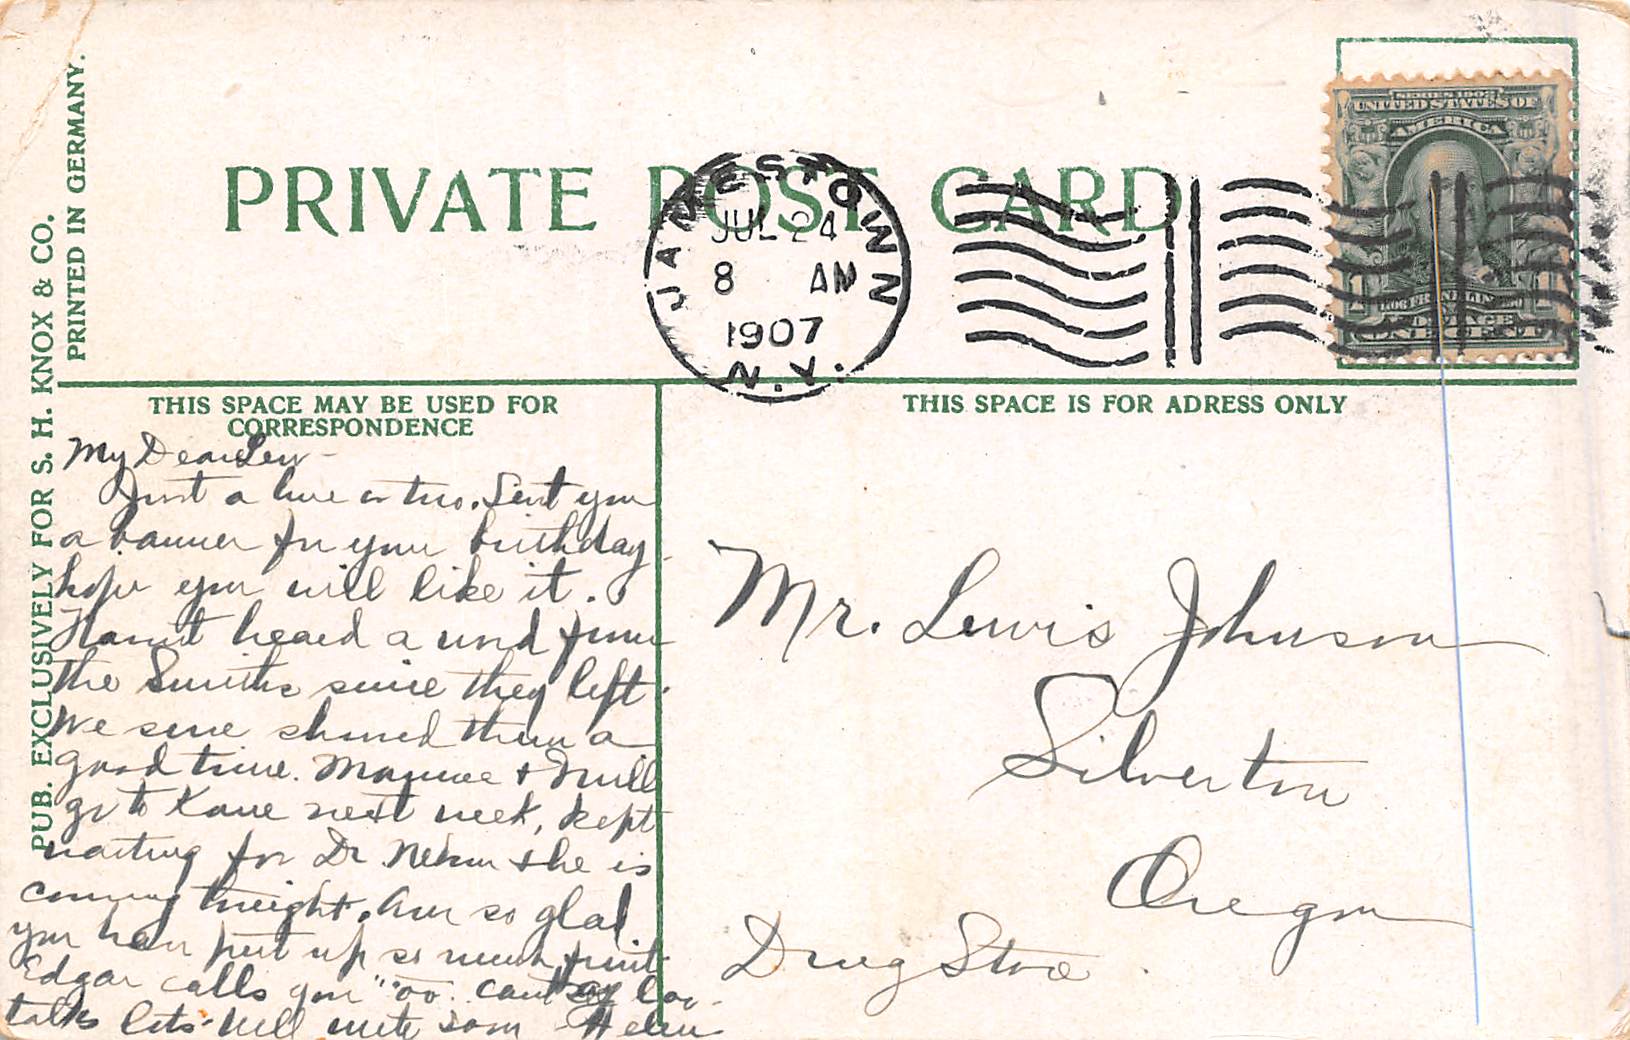 PUB. EXCLUSIVELY FOR S. H. KNOX & CO.
PRINTED IN GERMANY.
PRIVATE POST CARD
JAMESTOWN
JUL 24
8 AM
1907
N.Y.
SERIES 1902
UNITED STATES OF
AMERICA
1706 FRANKLIN 1790
POSTAGE
1 ONE CENT 1
THIS SPACE MAY BE USED FOR
CORRESPONDENCE
THIS SPACE IS FOR ADRESS ONLY
My Dear Lew -
Just a line or two. Sent you
a banner for your birthday
hope you will like it.
Havn't heard a word from
the Smiths since they left.
We sure showed them a
good time. + Mull
go to Kane next week, kept
waiting for Dr. + he is
coming tonight. Am so glad
you have put up so much fruit
Edgar calls you "oo. can't say Loo -
talks lots - Will write soon - Helen
Mr. Lewis Johnson
Silverton
Oregon
Drug Store